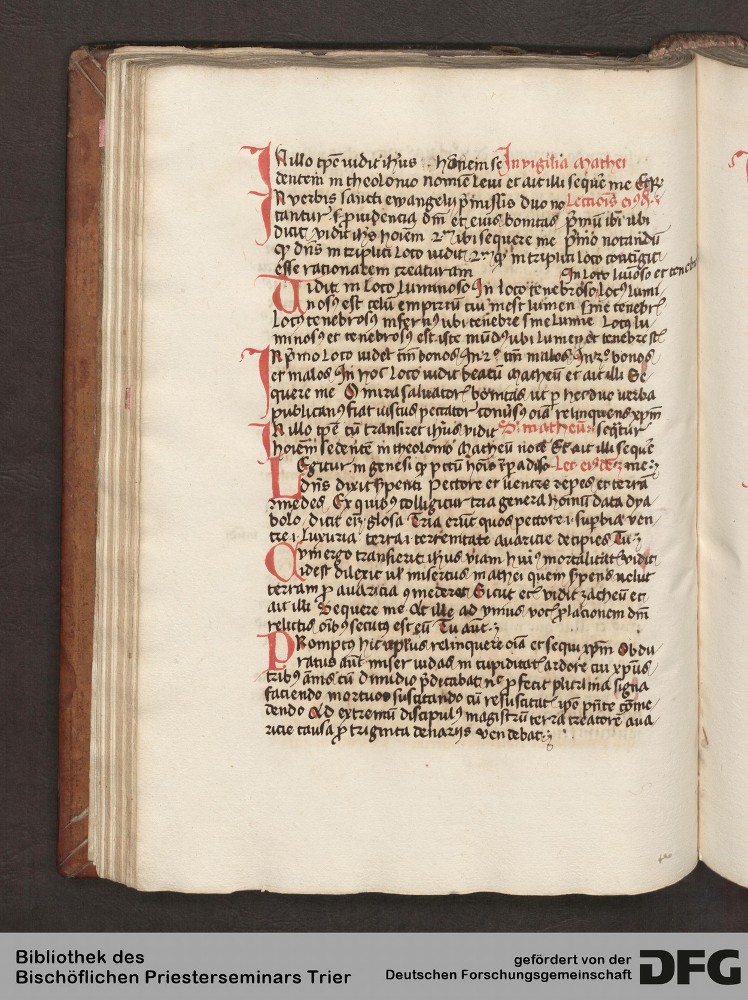 IN illo tp̄e uidit ih̄us hoīnem se In vigilia Mathei
dentem in theolonio nomīe Leui et ait illi sequēre me Et R̄
IN verbis sancti ewangelij p̄missis duo no Lectiōis ei9dē
tantur s. p̄uidencia dn̄i et eius bonitas p̄mū ibi ubi
dicit vidit ih̄s hoīem 2m ibi sequere me p̄imo notandū
qꝫ dn̄s in triplici Loco uidit in triplici loco contīgit
esse rationalem creaturam In loco lūoso et teneb
Vidit in Loco Luminoso In loco tenebroso Loc9 lumi
nos9 est celū empiriū cui inest lumen sine tenebr̄
Loc9 tenebros9 infern9 ubi tenebre sine Lumīe Loc9 lu
minos9 et tenebros9 est iste mūd9 ubi Lumen et tenebre st̄
IN p̄imo Loco uidet tm̄ bonos In 2o tm̄ malos In 3o bonos
et malos In hoc Loco uidit beatū Matheū et ait illi Se
quere me O mira saluator̄ bonitas ut p̄ hec duo uerba
publican9 fiat iustus peccator conūs9 oīa relinquens xp̄m
IN illo tp̄e cū transiret ih̄us vidit S. matheū seq̄tur
hoīem sedentē in theolonio Matheū noīe Et ait illi sequē
Legitur in genesi qꝫ p̄ctū hoīs ī p̄adiso Lec ei9dē me
dn̄s dixit s̄penti pectore et uentre repes et terrā
9medes Ex quib9 colligitur tria genera hoīnū data dya
bolo dicit eī glosa Tria erūt quos pectore i sup̄bia ven
tre i Luxuria terra i terrenitate auaricie decipies Tu
Cvm ergo transierit ih̄us viam hui9 mortalitat̄ vidit
idest dilexit ul̄ misertus mathei quem s̄pens uelut
terram p̄ auaricia 9mederet Sicut et vidit zacheū et
ait illi Sequere me At ille ad vnius voc̄ p̄lacionem dn̄i
relictis oīb9 secut9 est eū Tu aut̄
Prompt9 hic ap̄lus relinquere oīa et sequi xp̄m Obdu
ratus aūt miser iudas in cupiditat̄ ardore cui xp̄us
trib9 annis cū dimidio p̄dicabat nec p̄fecit plurima signa
faciendo mortuos suscitando cū resuscitat ip̄o p̄nte cōme
dendo Ad extremū discipul9 magistrū terra creatorē aua
ricie causa p̄ triginta denarijs vendebat
Bibliothek des
Bischöflichen Priesterseminars Trier
gefördert von der
Deutschen Forschungsgemeinschaft
DFG